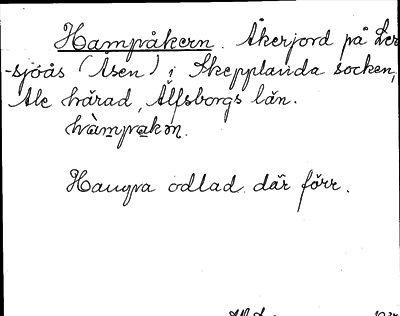 Hampåkern. Åkerjord på Ler
-sjöås (Åsen) i Skepplanda socken,
Ale härad, Älfsborgs län.
hàmpakən.
odlad där förr.